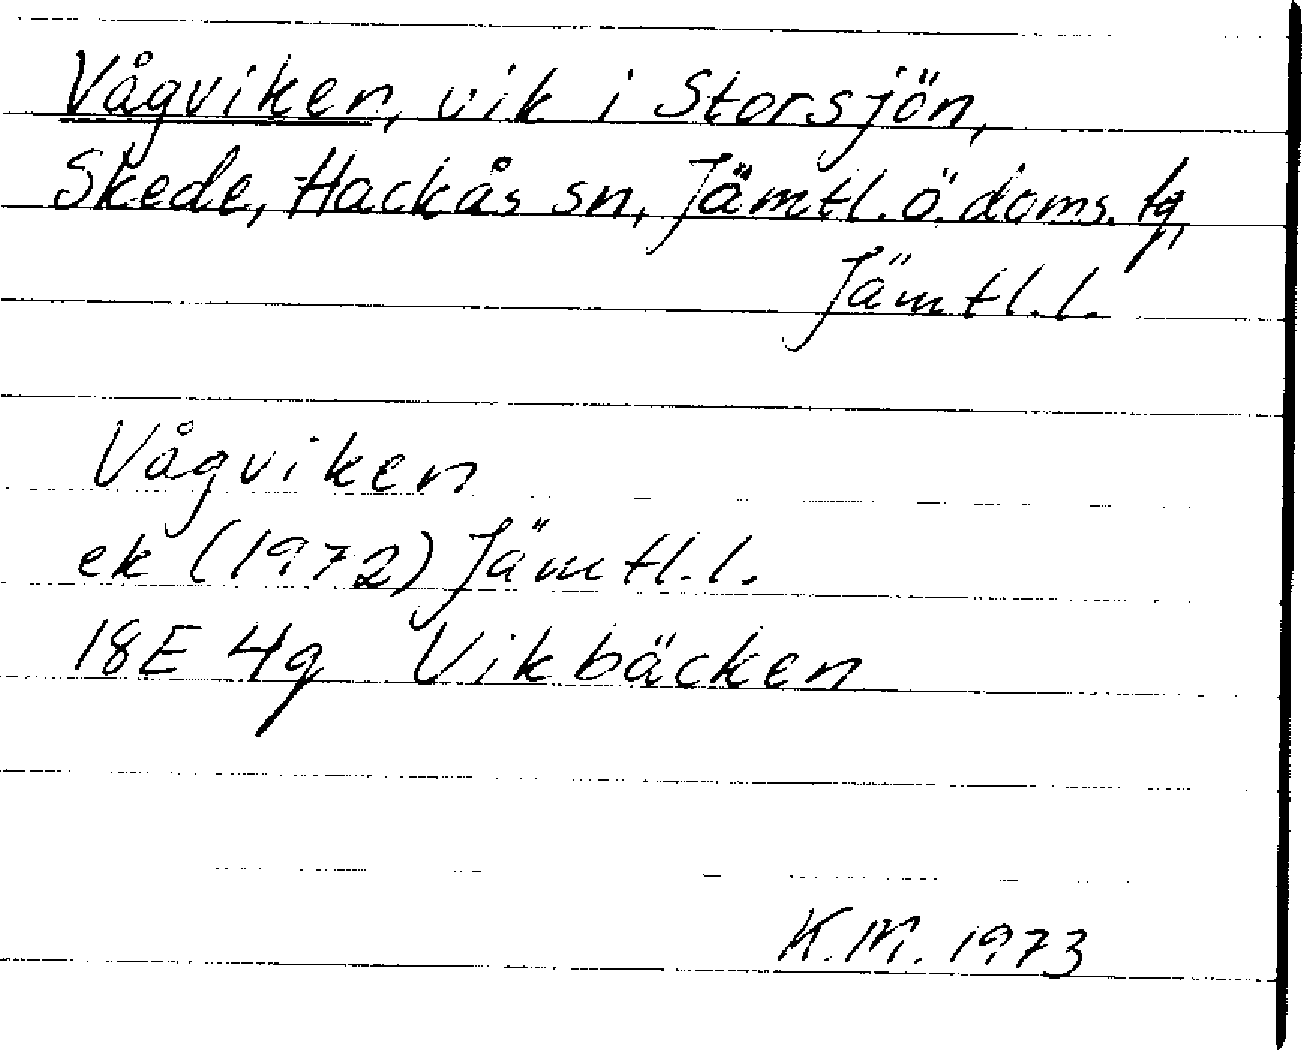 Vågviken, vik i Storsjön,
Skede, Hackås sn, Jämtl. ö. doms. tg,
Jämtl. l.
Vågviken
ek (1972) Jämtl. l.
18E 4g Vikbäcken
K. M. 1973